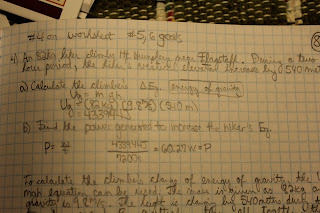 #4 on worksheet #5,6 goals
4) An 82kg hiker climbs Mt. Humphreys near Flagstaff. During a two
hour period, the hiker's vertical elevation increase by 540 met
a) Calculate the climber's ΔEg. energy of gravity
Ug = mgh
Ug = (82kg)(9.8 m/s²)(540m)
= 433944J
b) Find the power generated to increase the hiker's Eg.
P= 433944J / 7200s = 60.27W = P
To calculate the climbers change of energy of gravity, the U
mgh equation can be used. The mass is given as 82kg a
gravity is 9.8m/s. The height is change by 540 metres during t